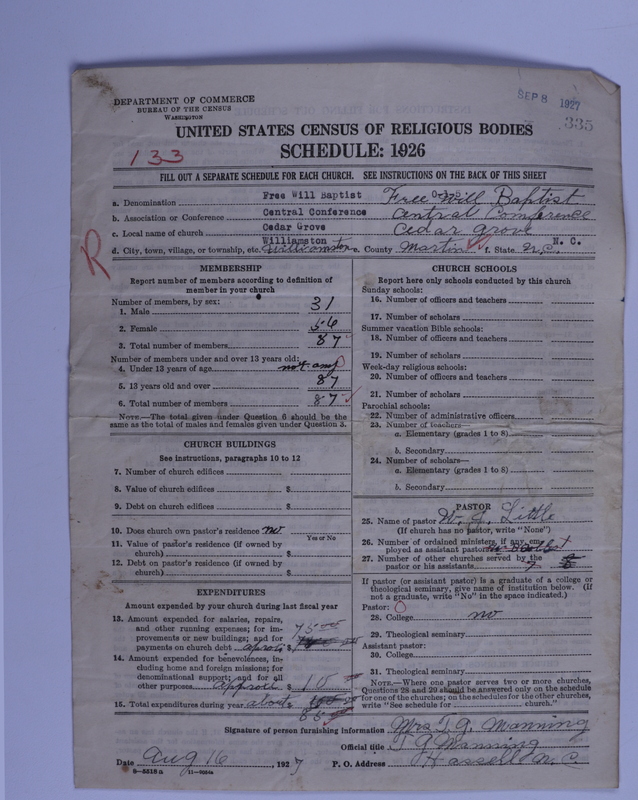 SEP 8 1927
335
DEPARTMENT OF COMMERCE
BUREAU OF THE CENSUS
WASHINGTON
UNITED STATES CENSUS OF RELIGIOUS BODIES
133
SCHEDULE: 1926
FILL OUT A SEPARATE SCHEDULE FOR EACH CHURCH. SEE INSTRUCTIONS ON THE BACK OF THIS SHEET
a. Denomination Free Will Baptist Free Will Baptist
b. Association or Conference Central Conference Central Conference
c. Local name of church Cedar Grove Cedar Grove
d. City, town, village, or township, etc. Williamston Williamston e. County Martin f. State N.C. N. C.
R
MEMBERSHIP
Report number of members according to definition of
member in your church
Number of members, by sex:
1. Male 31
2. Female 56
3. Total number of members 87
Number of members under and over 13 years old:
4. Under 13 years of age not any
5. 13 years old and over 87
6. Total number of members 87
NOTE.—The total given under Question 6 should be the
same as the total of males and females given under Question 3.
CHURCH BUILDINGS
See instructions, paragraphs 10 to 12
7. Number of church edifices
8. Value of church edifices $
9. Debt on church edifices $
10. Does church own pastor's residence? no
Yes or No
11. Value of pastor's residence (if owned by
church) $
12. Debt on pastor's residence (if owned by
church) $
EXPENDITURES
Amount expended by your church during last fiscal year
13. Amount expended for salaries, repairs,
and other running expenses; for im-
provements or new buildings; and for
payments on church debt $ 75.00
14. Amount expended for benevolences, in-
cluding home and foreign missions; for
denominational support; and for all
other purposes $ 10
15. Total expenditures during year about $
85
CHURCH SCHOOLS
Report here only schools conducted by this church
Sunday schools:
16. Number of officers and teachers
17. Number of scholars
Summer vacation Bible schools:
18. Number of officers and teachers
19. Number of scholars
Week-day religious schools:
20. Number of officers and teachers
21. Number of scholars
Parochial schools:
22. Number of administrative officers
23. Number of teachers—
a. Elementary (grades 1 to 8)
b. Secondary
24. Number of scholars—
a. Elementary (grades 1 to 8)
b. Secondary
PASTOR
25. Name of pastor W. J. Little
(If church has no pastor, write "None")
26. Number of ordained ministers, if any, em-
ployed as assistant pastors
27. Number of other churches served by the
pastor or his assistants 7
If pastor (or assistant pastor) is a graduate of a college or
theological seminary, give name of institution below. (If
not a graduate, write "No" in the space indicated.)
Pastor:
28. College no
29. Theological seminary
Assistant pastor:
30. College
31. Theological seminary
NOTE.—Where one pastor serves two or more churches,
Questions 28 and 29 should be answered only on the schedule
for one of the churches; on schedules for the other churches,
write "See schedule for church."
Signature of person furnishing information Mrs. J. G. Manning
Official title J G Manning
Date Aug 16, 1927 P. O. Address Hassell N.C.
8—5518a 11—9084a